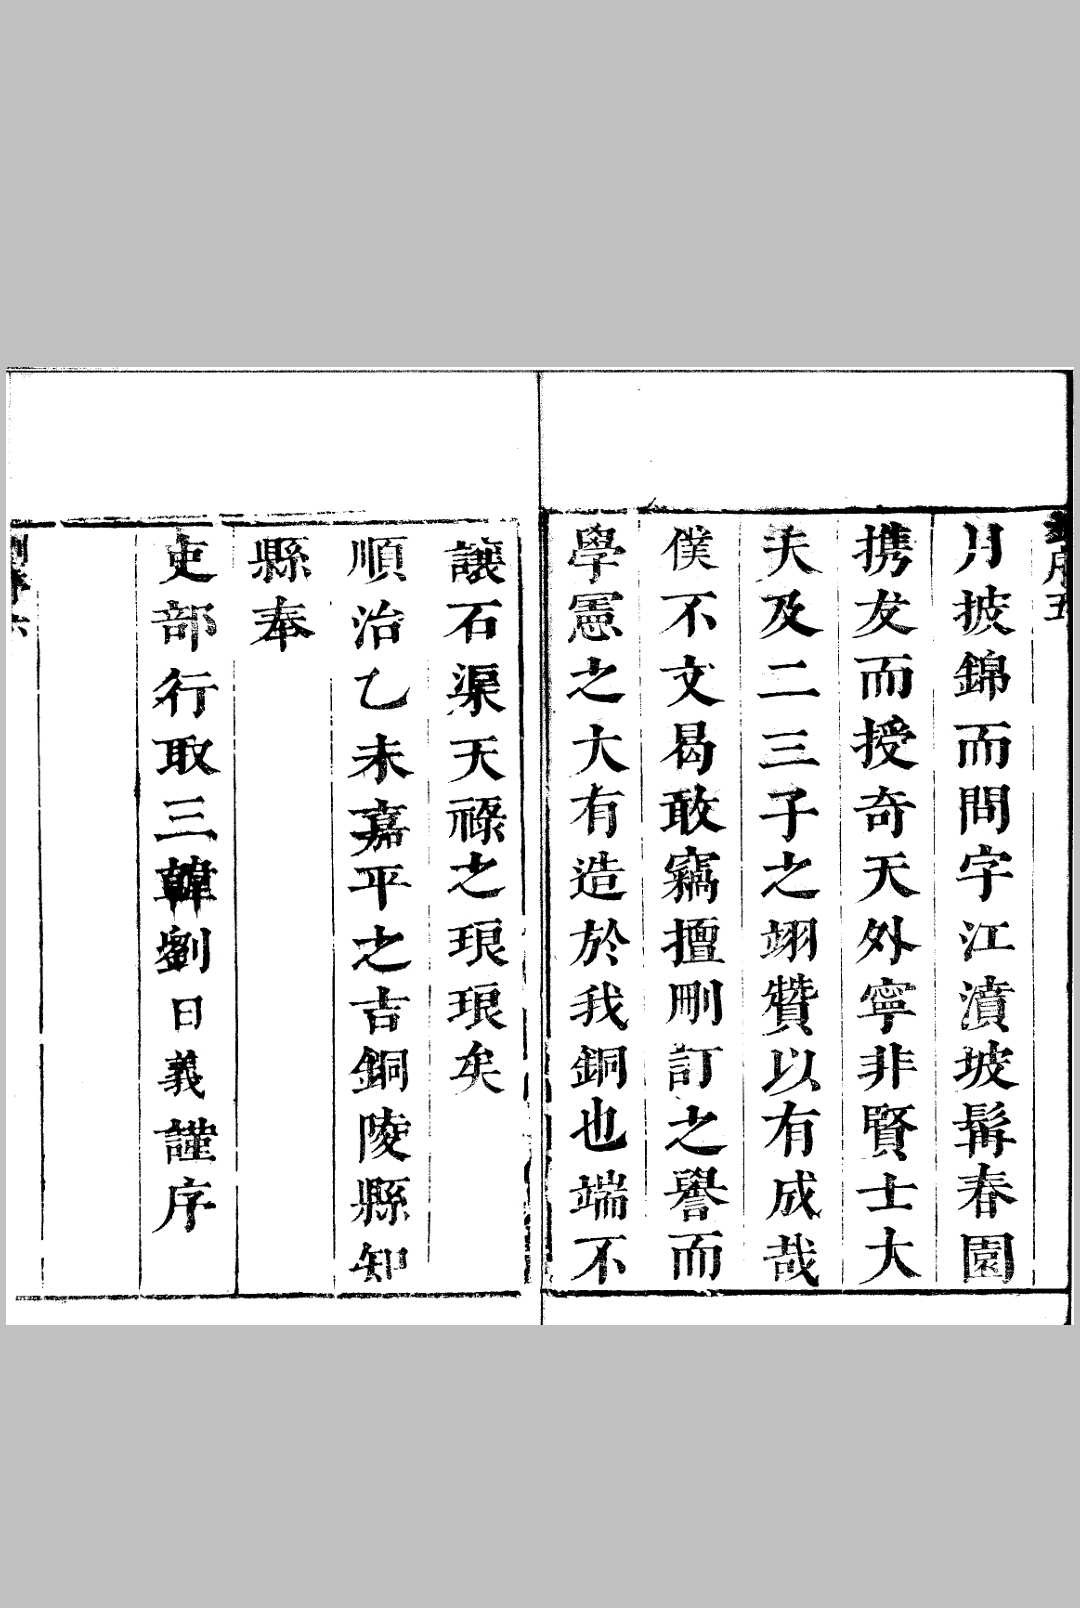 月披錦而問字江濆坡髯春園
携友而授奇天外寧非賢士大
夫及二三子之翊贊以有成哉
僕不文曷敢竊擅刪訂之譽而
學憲之大有造於我銅也端不
讓石渠天祿之琅琅矣
順治乙未嘉平之吉銅陵縣知
縣奉
吏部行取三韓劉日義謹序